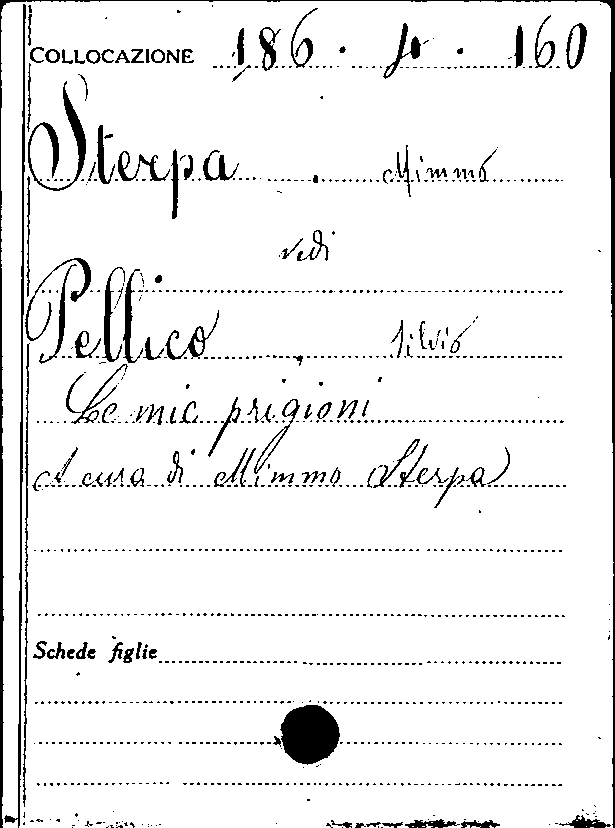 COLLOCAZIONE 186. . 160
Sterpa, Mimmo
vedi
Pellico, Silvio
Le mie prigioni
A cura di Mimmo Sterpa
Schede figlie